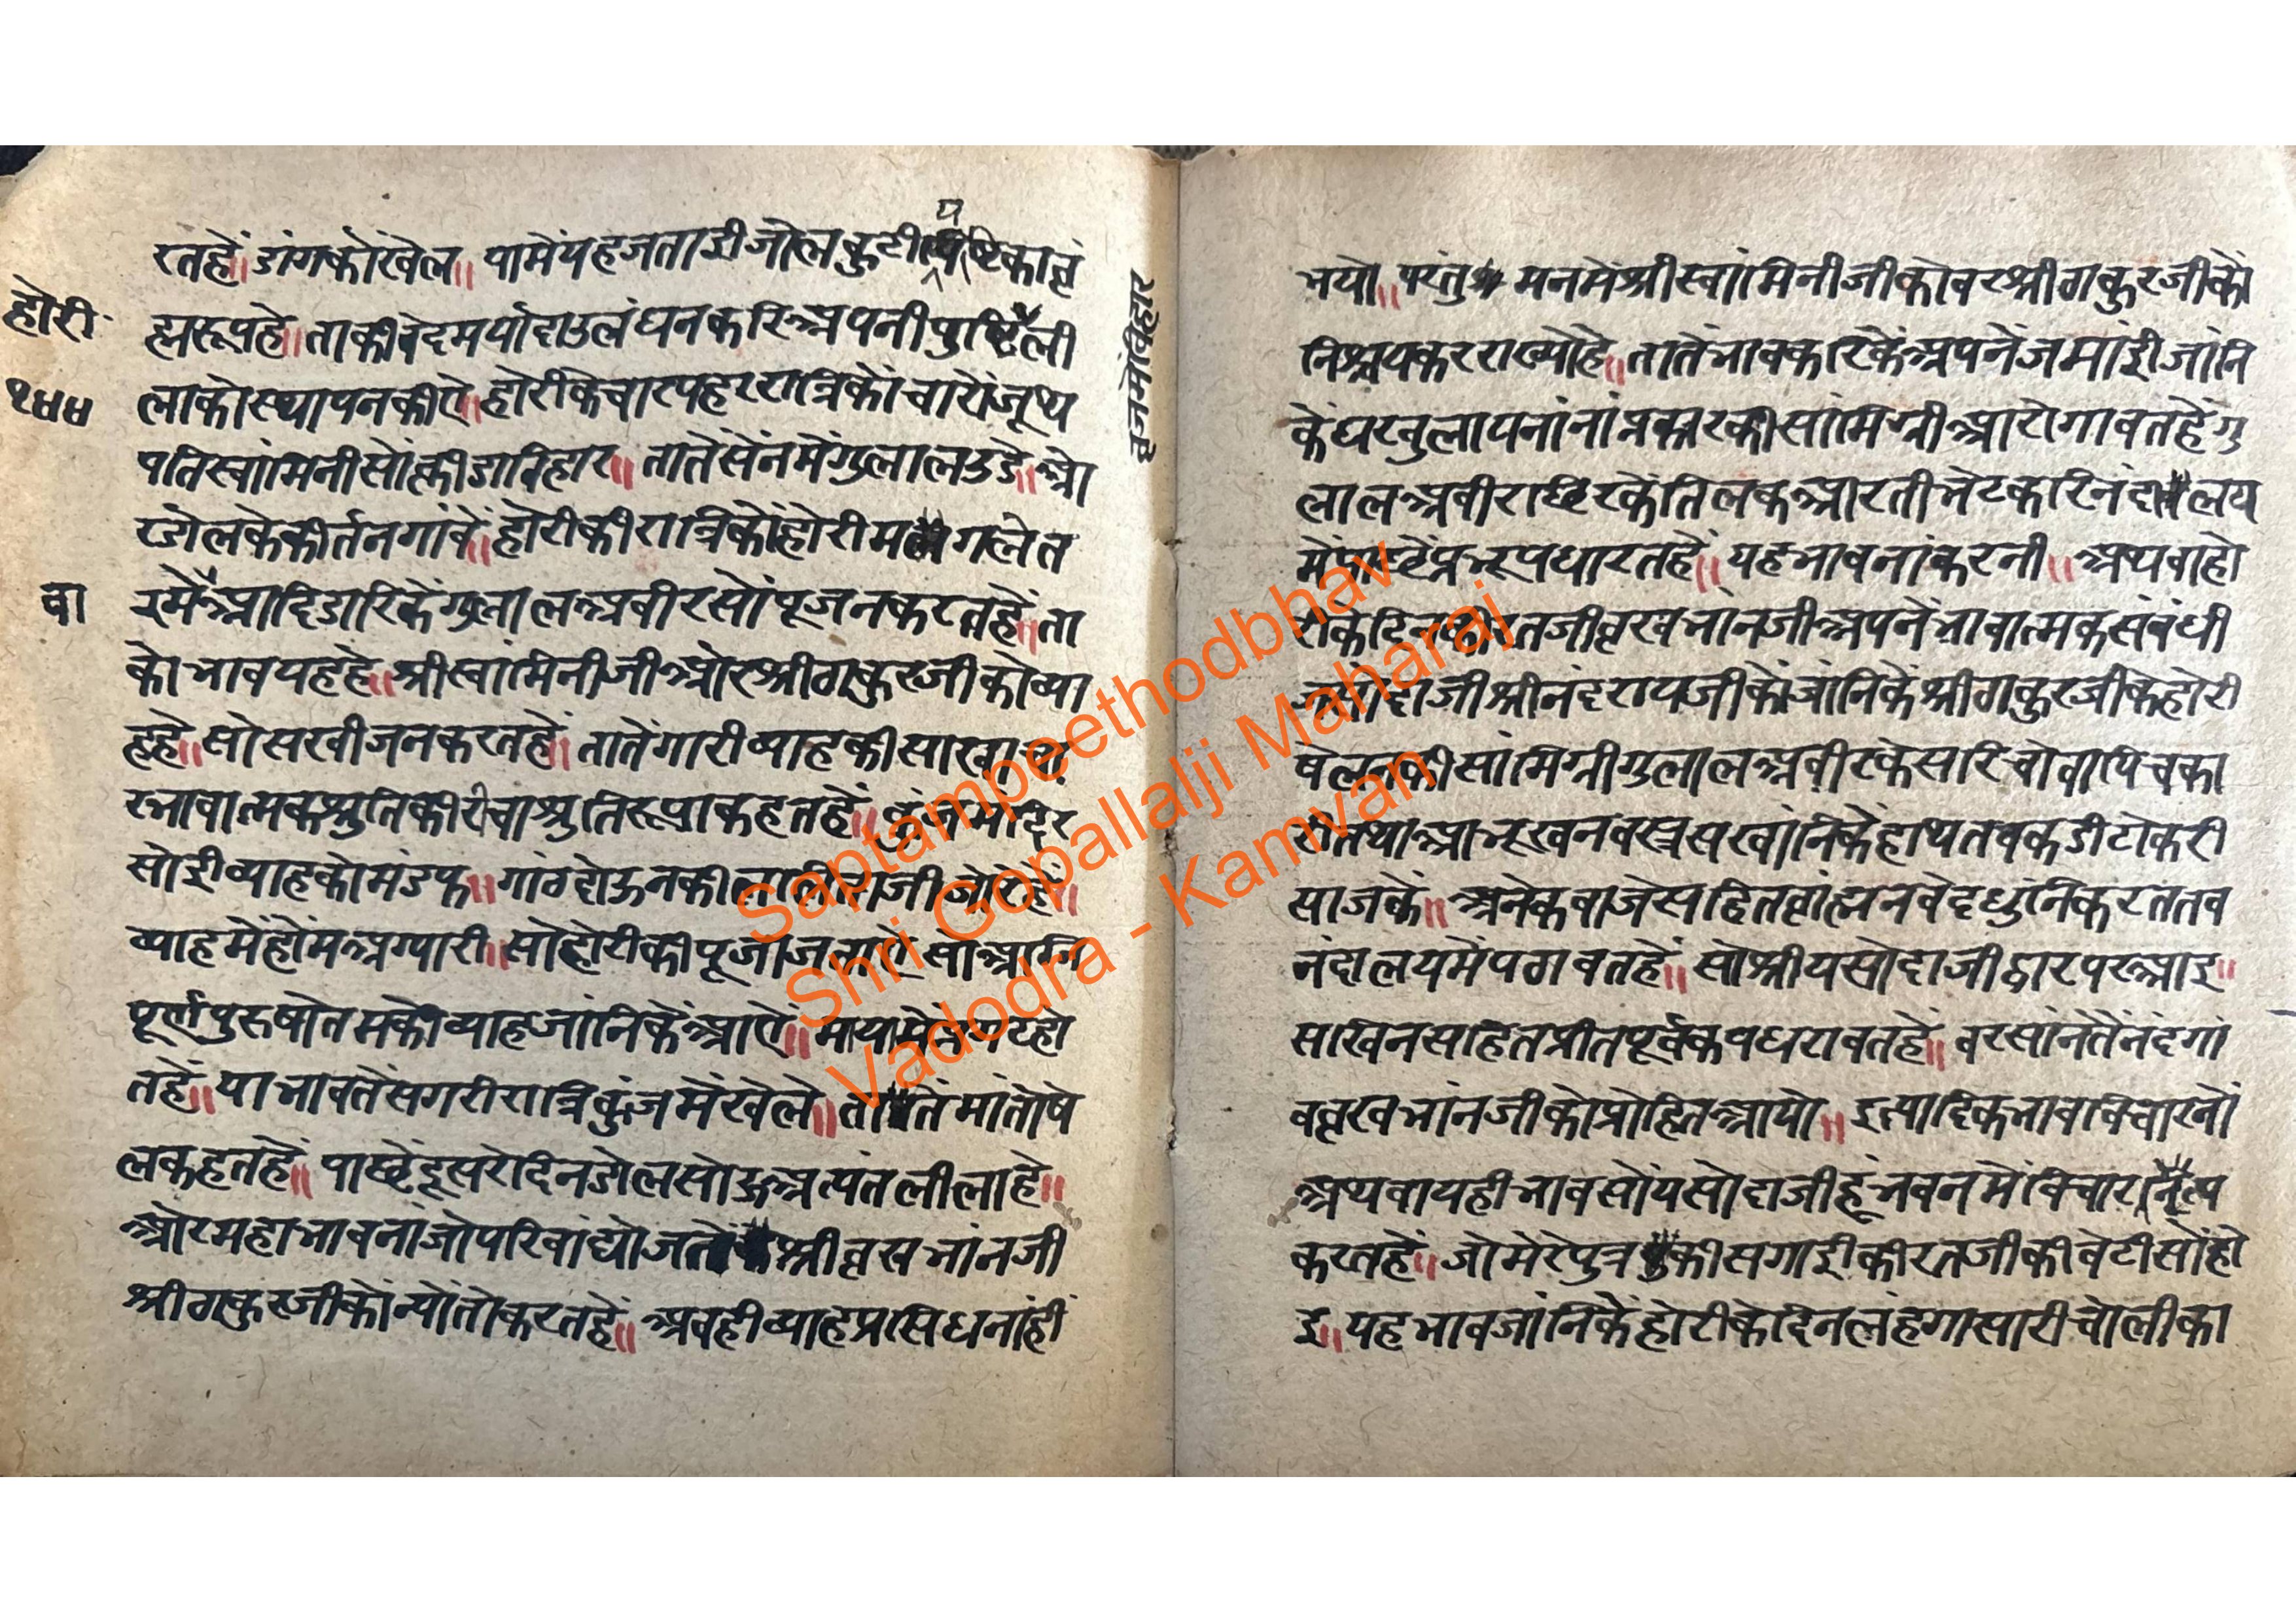 रतहें॥ डांगकोखेल॥ यामेंयहजताईजोलकुटीयष्टिकाव्रं
ह्मरूपहे॥ ताकीवेदमर्यादाउलंघनकरिअपनीपुष्टिली
होरी
लाकोस्थापनकीऐ॥ होरीकेचारपहररात्रिकोंचारोंजूथ
१५५
पतिस्वांमिनीसोंक्रीडाविहार॥ तातेंसेंनमेंगुलालउडे॥ ओ
रडोलकेकीर्तनगांवें॥ होरीकीरात्रिकोंहोरीमगलेत
वा
रमेंआदिडारिकेंगुलालअबीरसोंपूजनकरतहें॥ ता
कोभावयहहे॥ श्रीस्वांमिनीजीओरश्रीठाकुरजीकोव्या
हहे॥ सोसखीजनकरतहें॥ तातेंगारीव्याहकीसाखाचा
रभावात्मकश्रुतिकीरीचाश्रुतिरूपाकहतहें॥ कुंजमंदिर
सोईव्याहकोमंडफ॥ गांठदोऊनकीललिताजीजोरेहें॥
व्याहमेंहोंमअग्यारी॥ सोहोरीकीपूजाजताऐ सोअग्नि
पूर्णपुरुषोतमकोव्याहजांनिकेंआऐ॥
तहें॥ याभावतेंसगरीरात्रिकुंजमेंखेले॥ तातेंमांतोषे
लकहतहें॥ पाछेंदूसरेदिनडोलसोऊअत्यंतलीलाहे॥
ओरमहाभावनांजोपरिवांद्योजतें श्रीव्रसभांनजी
श्रीठाकुरजीकोंन्योंतोकरतहें॥ अबहीव्याहप्रसिधनांहीं
वृजमेंविहार
भयो॥ परंतु मनमेंश्रीस्वांमिनीजीकोवरश्रीठाकुरजीकों
निश्चयकरराख्योहे॥ तातेंभावकरिकेंअपनेंजमांईजांनि
केंघरबुलायनांनांप्रकारकीसांमिग्रीआरोगावतहेंगु
लालअबीरछिरकेंतिलकआरतीभेटकरिनंदालय
मेंपाछेंप्रभूपधारतहें॥ यहभावनांकरनी॥ अथवाहो
रीकेदिनकीरतजीव्रखभानजीअपनेंभावात्मकसंबंधी
जसोदाजीश्रीनंदरायजीकोंजांनिकेंश्रीठाकुरजीकेहोरी
षेलनकीसांमिग्रीगुलालअबीरकेसरिचोवापिचका
रीतथाआभूखनवस्त्रसखांनिकेंहाथतबकडीटोकरी
साजकें॥ अनेकबाजेसहितव्रांह्मनवेदधुंनिकरततब
नंदालयमेंपठावतहें॥ सोश्रीयसोदाजीद्वारपरआइ॥
सखिनसहितप्रीतपूर्वकपधरावतहें॥ बरसांनेतेंनंदगां
वव्रखभांनजीकोप्रोहितआयो॥ इत्यादिकभावविचारनों
अथवायहीभावसोंयसोदाजीहूंभवनमेंविचारनृत्य
करतहें॥ जोमेरेपुत्रकीसगाईकीरतजीकीबेटीसोंहो
इ॥ यहभावजांनिकेंहोरीकेदिनलहंगासारीचोलीका
Saptampeethodbhav
Shri Gopallalji Maharaj
Vadodra - Kamvan